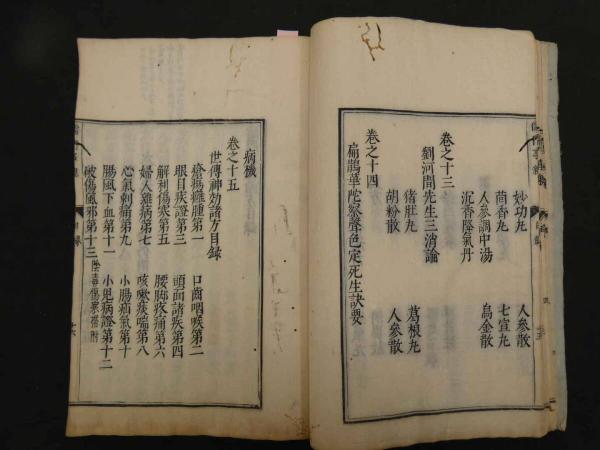 妙功丸 人參散
茴香丸 七宣丸
人參調中湯 烏金散
沉香降氣丹
卷之十三
劉河間先生三消論
猪肚丸 葛根丸
胡粉散 人參散
卷之十四
扁鵲華陀察聲色定死生訣要
病機
卷之十五
世傳神効諸方目錄
瘡瘍癰腫第一 口齒咽喉第二
眼目疾證第三 頭面諸疾第四
解利傷寒第五 腰脚疼痛第六
婦人雜病第七 咳嗽痰喘第八
心氣刺痛第九 小腸疝氣第十
腸風下血第十一 小兒病證第十二
破傷風邪第十三 陰毒傷寒摺附